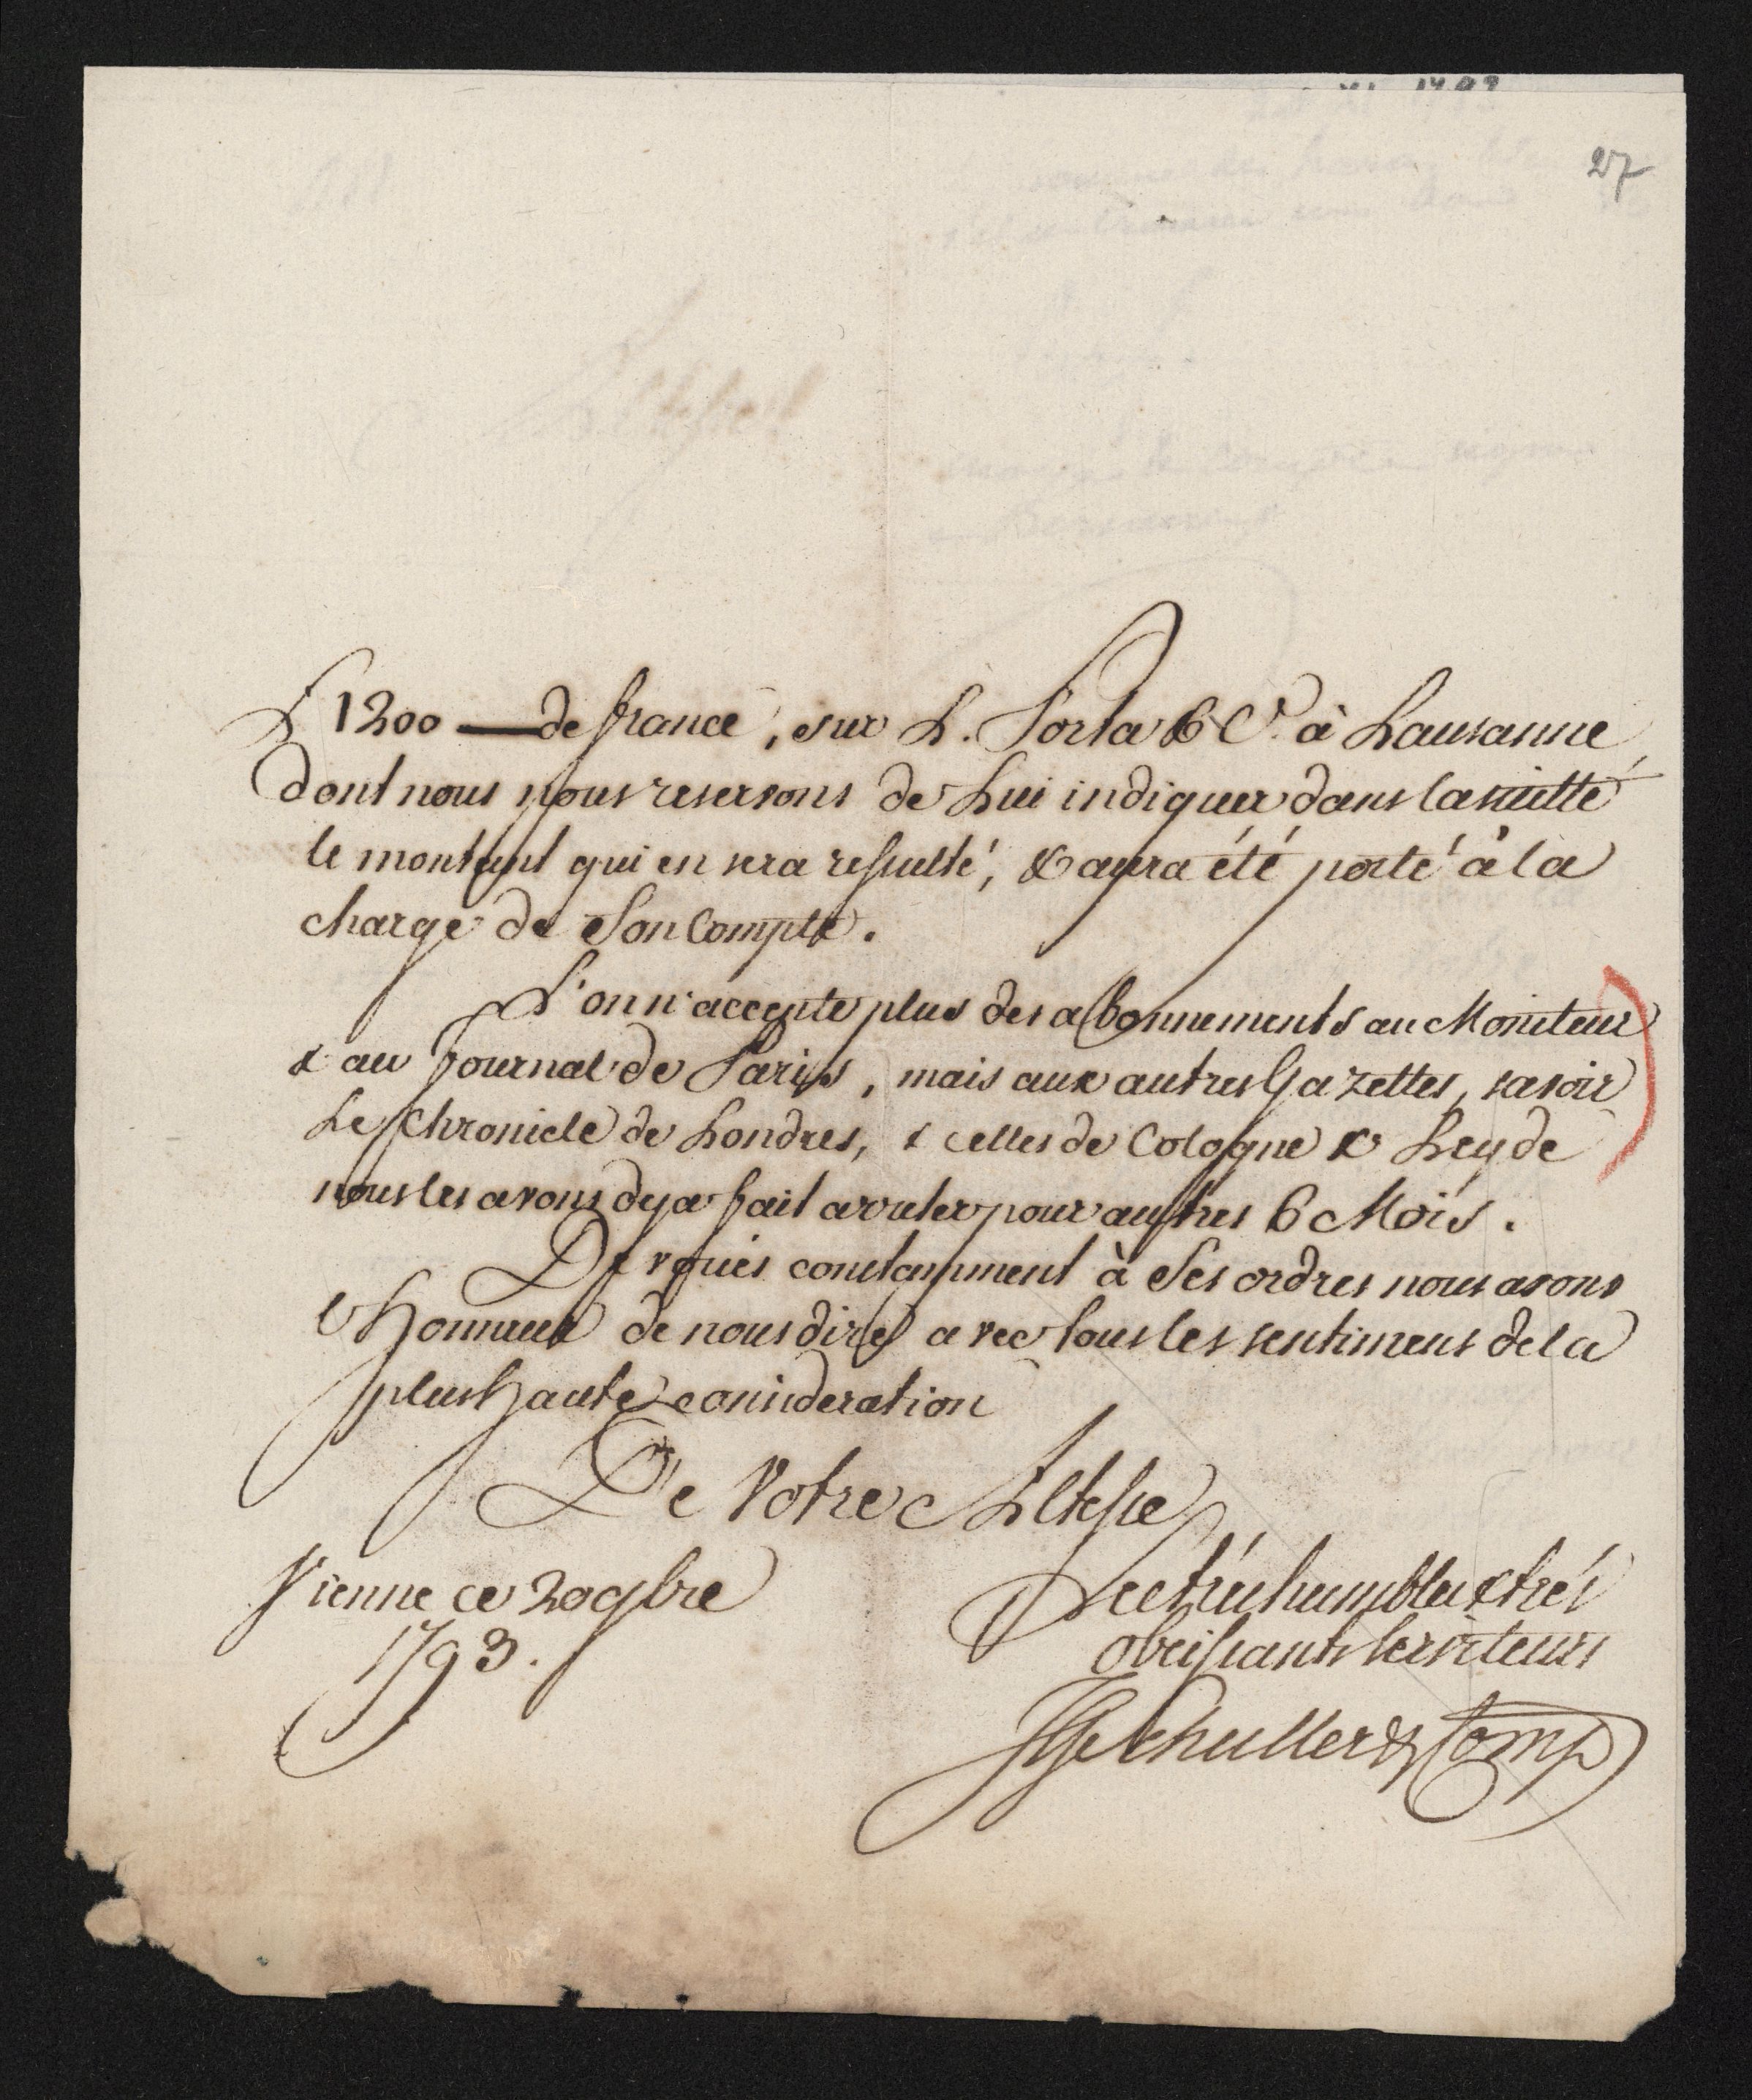 27
£ 1200 — de france, sur L. Porta & C.e à Lausanne
dont nous nous reservons de Lui indiquer dans la suitte
le montant qui en sera resulté, & aura été porté à la
charge de Son Compte.
L'on n'accepte plus des abonnements au Moniteur
& au Journal de Paris, mais aux autres Gazettes, savoir
Le Chronicle de Londres, & celles de Cologne & Leyde
nous les avons deja fait arreter pour autres 6 Mois.
Devoués constamment à Ses ordres nous avons
l'Honneur de nous dire avec tous les sentimens de la
plus haute consideration
De Votre Altesse
Vienne ce 20 9bre
1793.
Les trés humbles & trés
obeissants serviteurs
Schuller & Comp